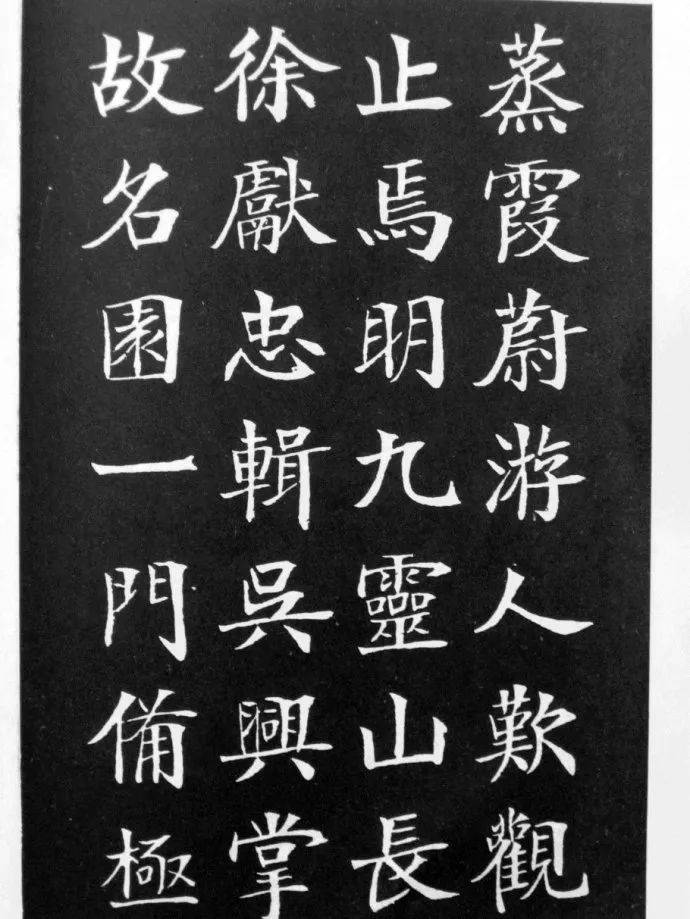 蒸霞蔚游人歎觀
止焉明九靈山長
徐獻忠輯吳興掌
故名園一門備極